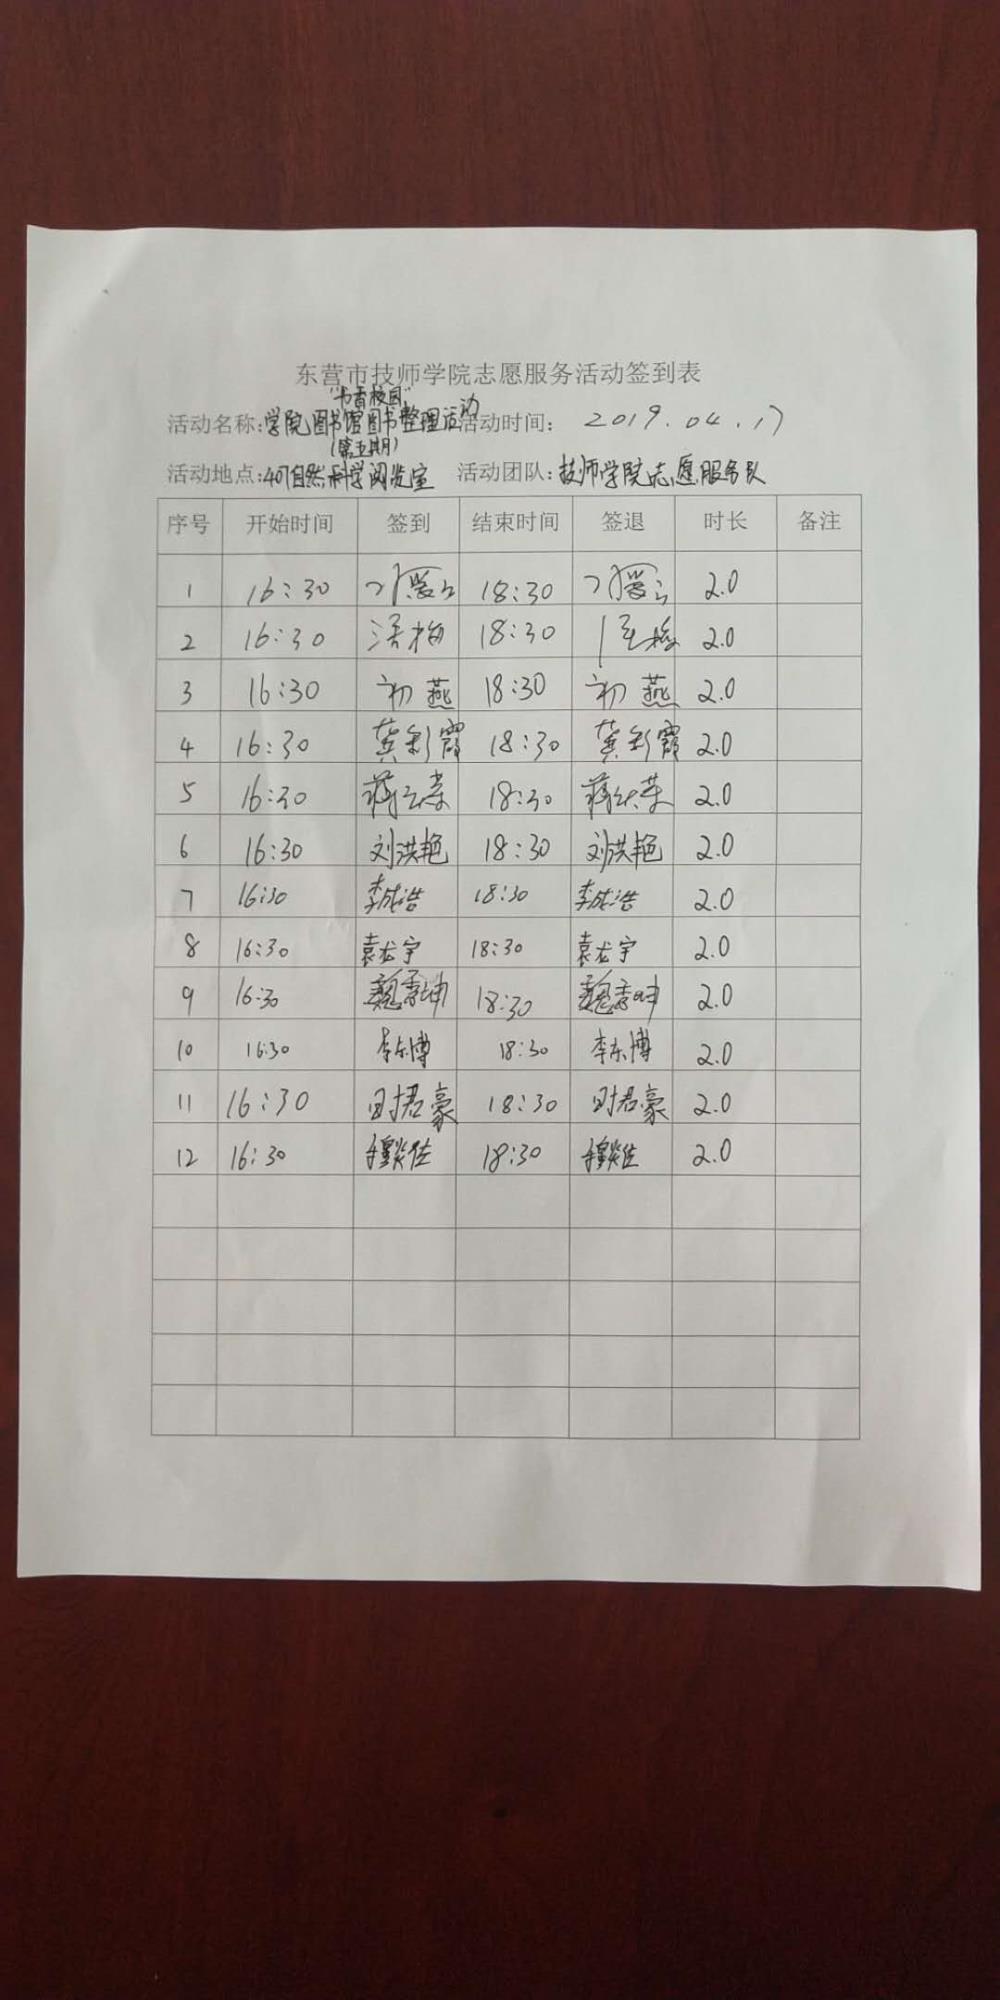 东营市技师学院志愿服务活动签到表
"书香校园"
活动名称:学院图书馆图书整理活动 活动时间: 2019.04.17
(第五期)
活动地点:407自然科学阅览室 活动团队:技师学院志愿服务队
序号 开始时间 签到 结束时间 签退 时长 备注
1 16:30 18:30 2.0
2 16:30 18:30 2.0
3 16:30 初燕 18:30 初燕 2.0
4 16:30 龚彩霞 18:30 龚彩霞 2.0
5 16:30 18:30 2.0
6 16:30 刘洪艳 18:30 刘洪艳 2.0
7 16:30 李成浩 18:30 李成浩 2.0
8 16:30 袁龙宇 18:30 袁龙宇 2.0
9 16:30 18:30 2.0
10 16:30 李东博 18:30 李东博 2.0
11 16:30 时君豪 18:30 时君豪 2.0
12 16:30 18:30 2.0